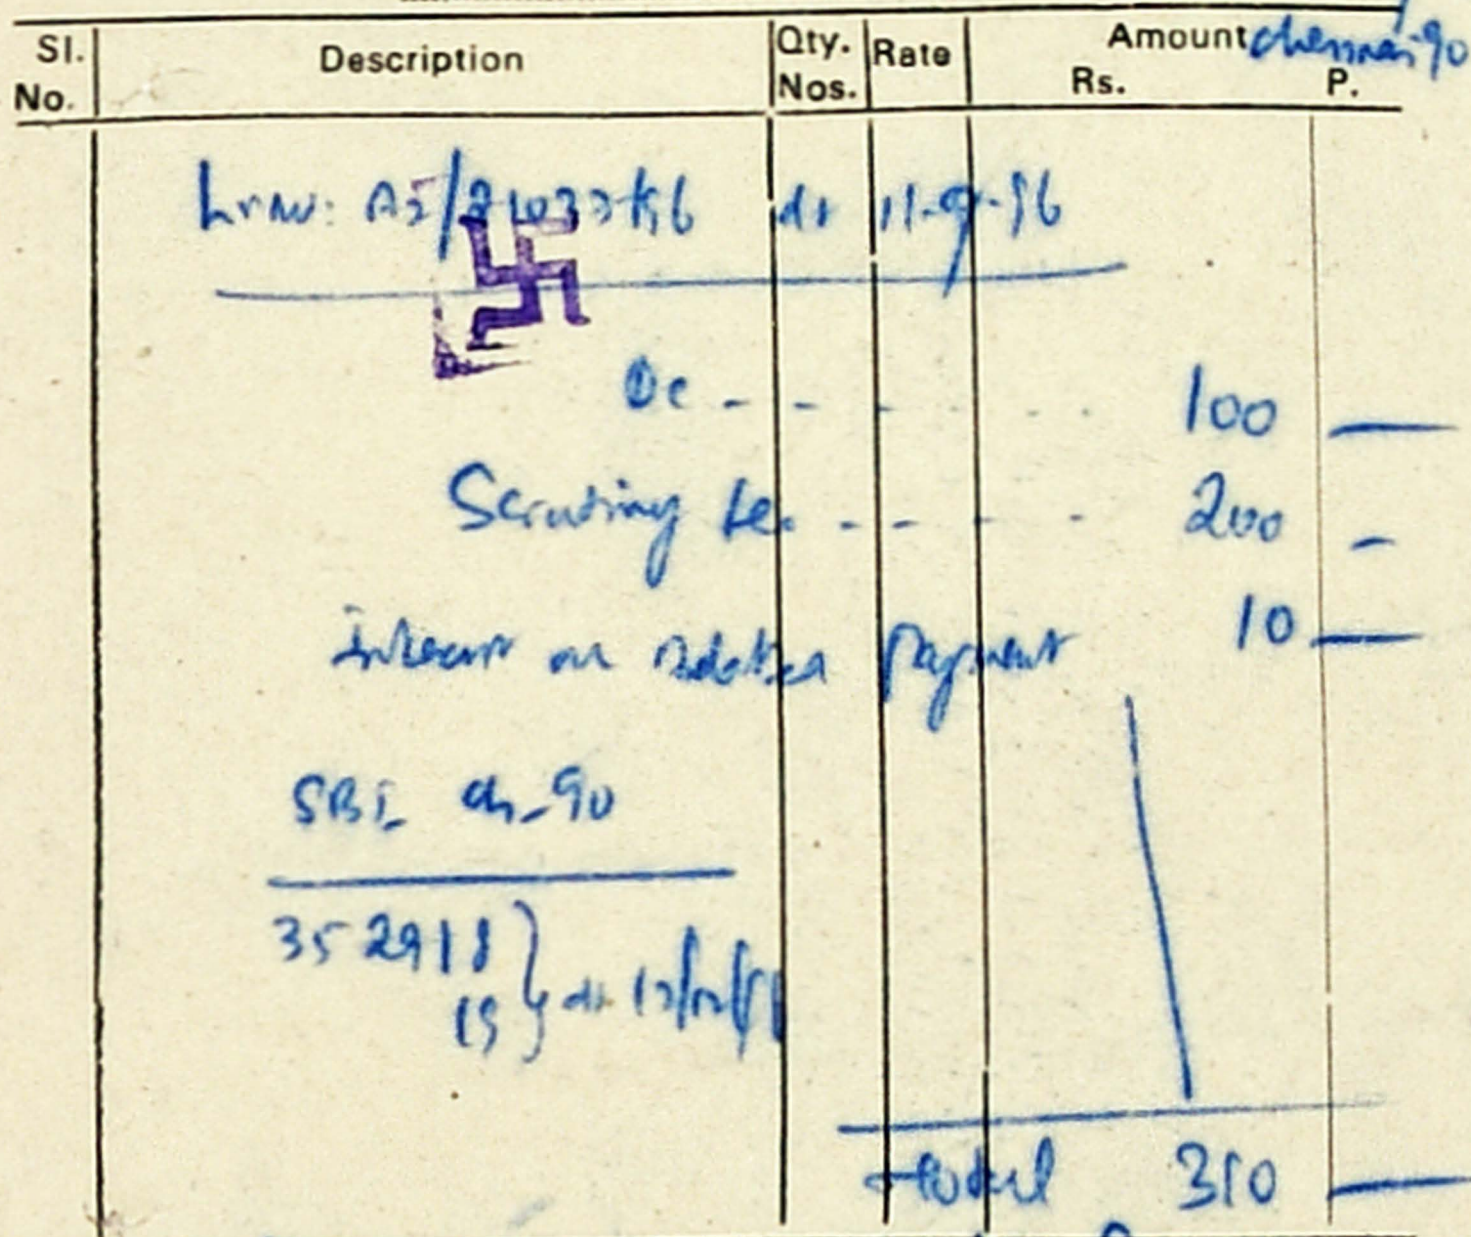 Sl. No. Description Qty. Nos. Rate Amount Rs. P.
Chennai-90
dt 11-9-86
DC - - - - - - 100 —
Scrutiny fee. - - - - 200 -
Interest on belated Payment 10 —
SBI ch-90
352918
19 } dt
total 310 —